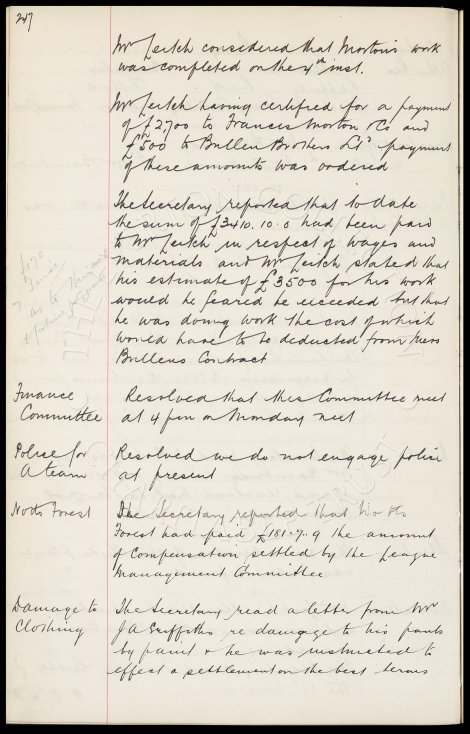 247
Mr Leitch considered that Mortons work
was completed on the 4th inst.
Mr Leitch having certified for a payment
of £2,700 to Francis Morton & Co and
£500 to Bullen Brothers Ld payment
of these amounts was ordered
The Secretary reported that to date
the sum of £3410.10.0 had been paid
to Mr Leitch in respect of wages and
materials and Mr Leitch stated that
his estimate of £3500 for his work
would he feared be exceeded but that
he was doing work the cost of which
would have to be deducted from Mess
Bullens Contract
Finance
Committee
Resolved that this Committee meet
at 4 pm on Monday next
Police for
A team
Resolved we do not engage police
at present
Notts Forest
The Secretary reported that Notts
Forest had paid £181.7.9 the amount
of Compensation settled by the League
Management Committee
Damage to
Clothing
The Secretary read a letter from Mr
J A Griffiths re damage to his pants
by paint & he was instructed to
effect a settlement on the best terms